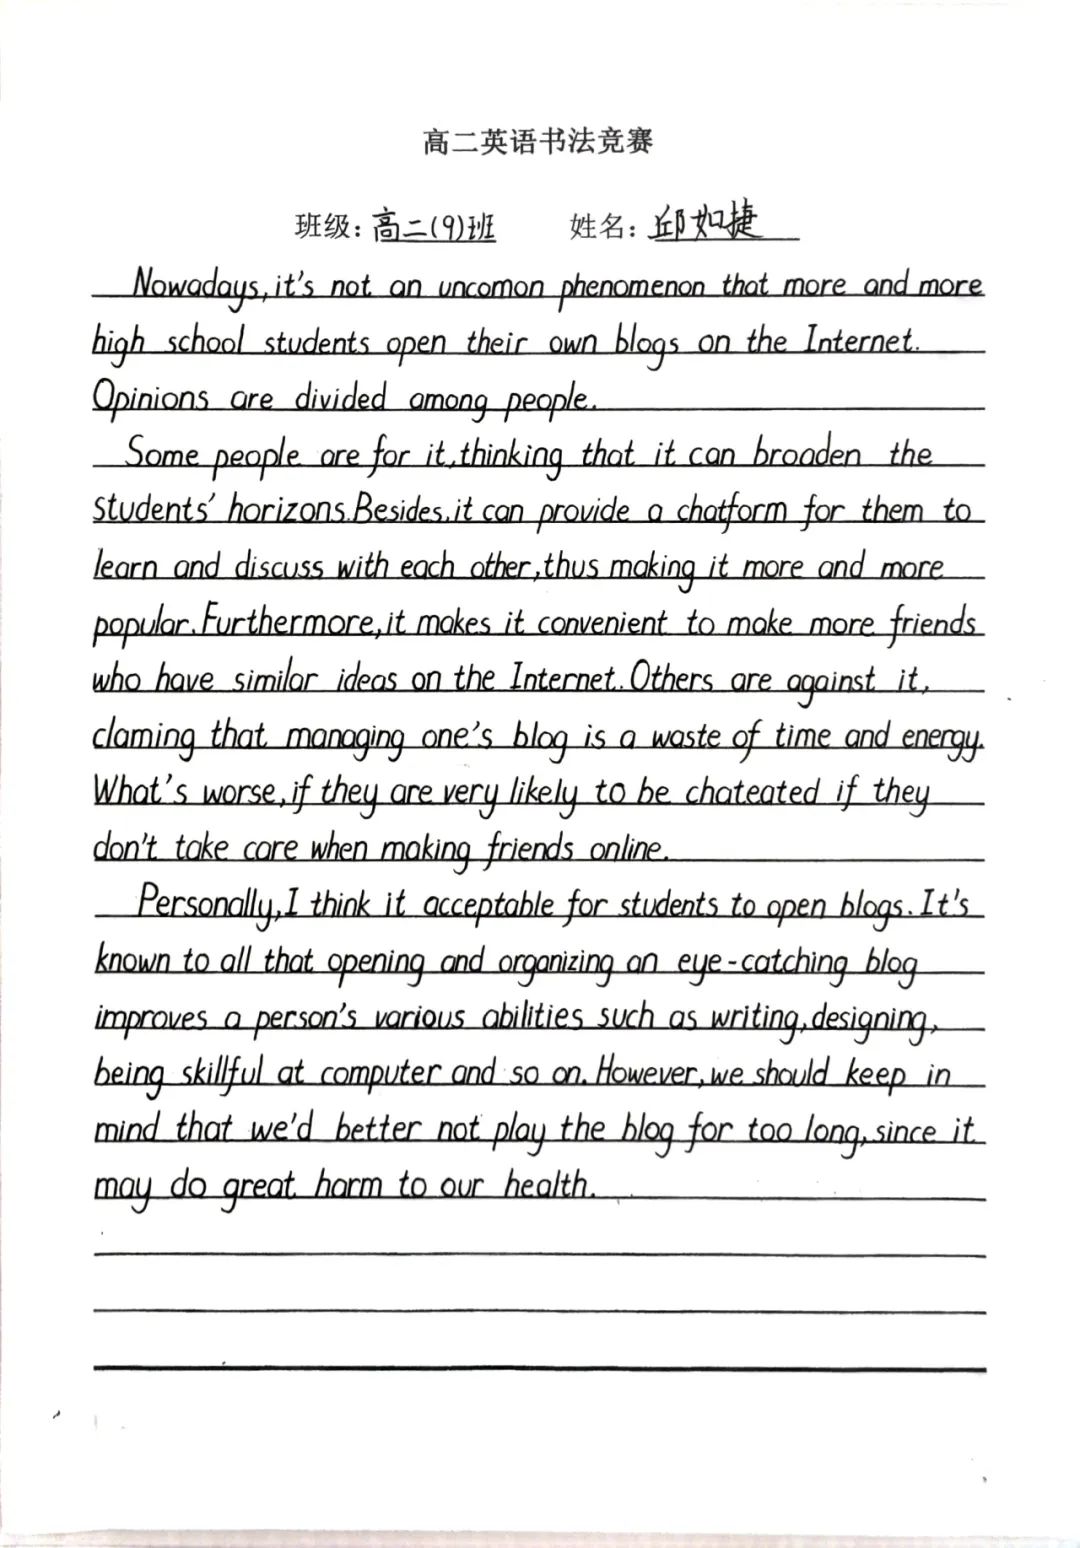 高二英语书法竞赛
班级：高二(9)班 姓名：邱如捷
Nowadays, it's not an uncomon phenomenon that more and more
high school students open their own blogs on the Internet.
Opinions are divided among people.
Some people are for it, thinking that it can broaden the
students' horizons. Besides, it can provide a chatform for them to
learn and discuss with each other, thus making it more and more
popular. Furthermore, it makes it convenient to make more friends
who have similar ideas on the Internet. Others are against it,
claming that managing one's blog is a waste of time and energy.
What's worse, if they are very likely to be chateated if they
don't take care when making friends online.
Personally, I think it acceptable for students to open blogs. It's
known to all that opening and organizing an eye-catching blog
improves a person's various abilities such as writing, designing,
being skillful at computer and so on. However, we should keep in
mind that we'd better not play the blog for too long, since it
may do great harm to our health.